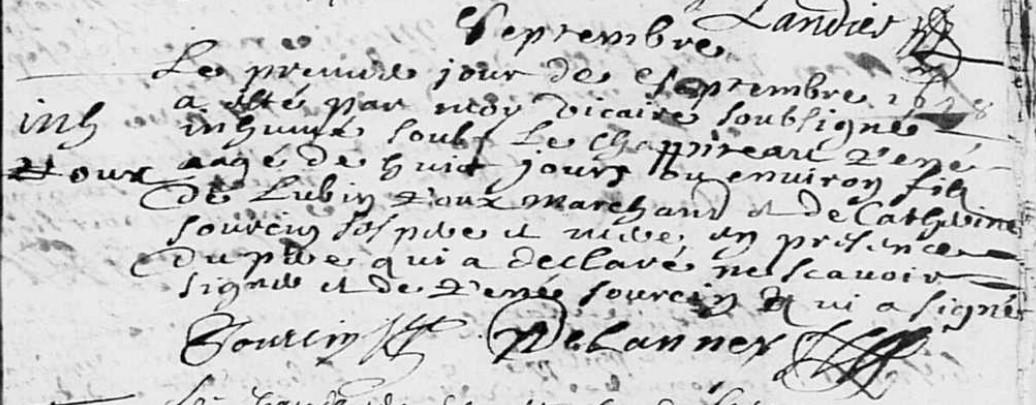 Landier
Septembre
Le premier jour de Septembre 1678
a esté par moy vicaire soubsigné
inh
inhumé soubs le chappiteau René
Roux
aagé de huit jours ou environ fils
de Lubin Roux marchand et de Catherine
Sourcin ses pere et mere en presence
du pere qui a declaré ne scavoir
signer et de René Sourcin qui a signé
Sourcin Delanney